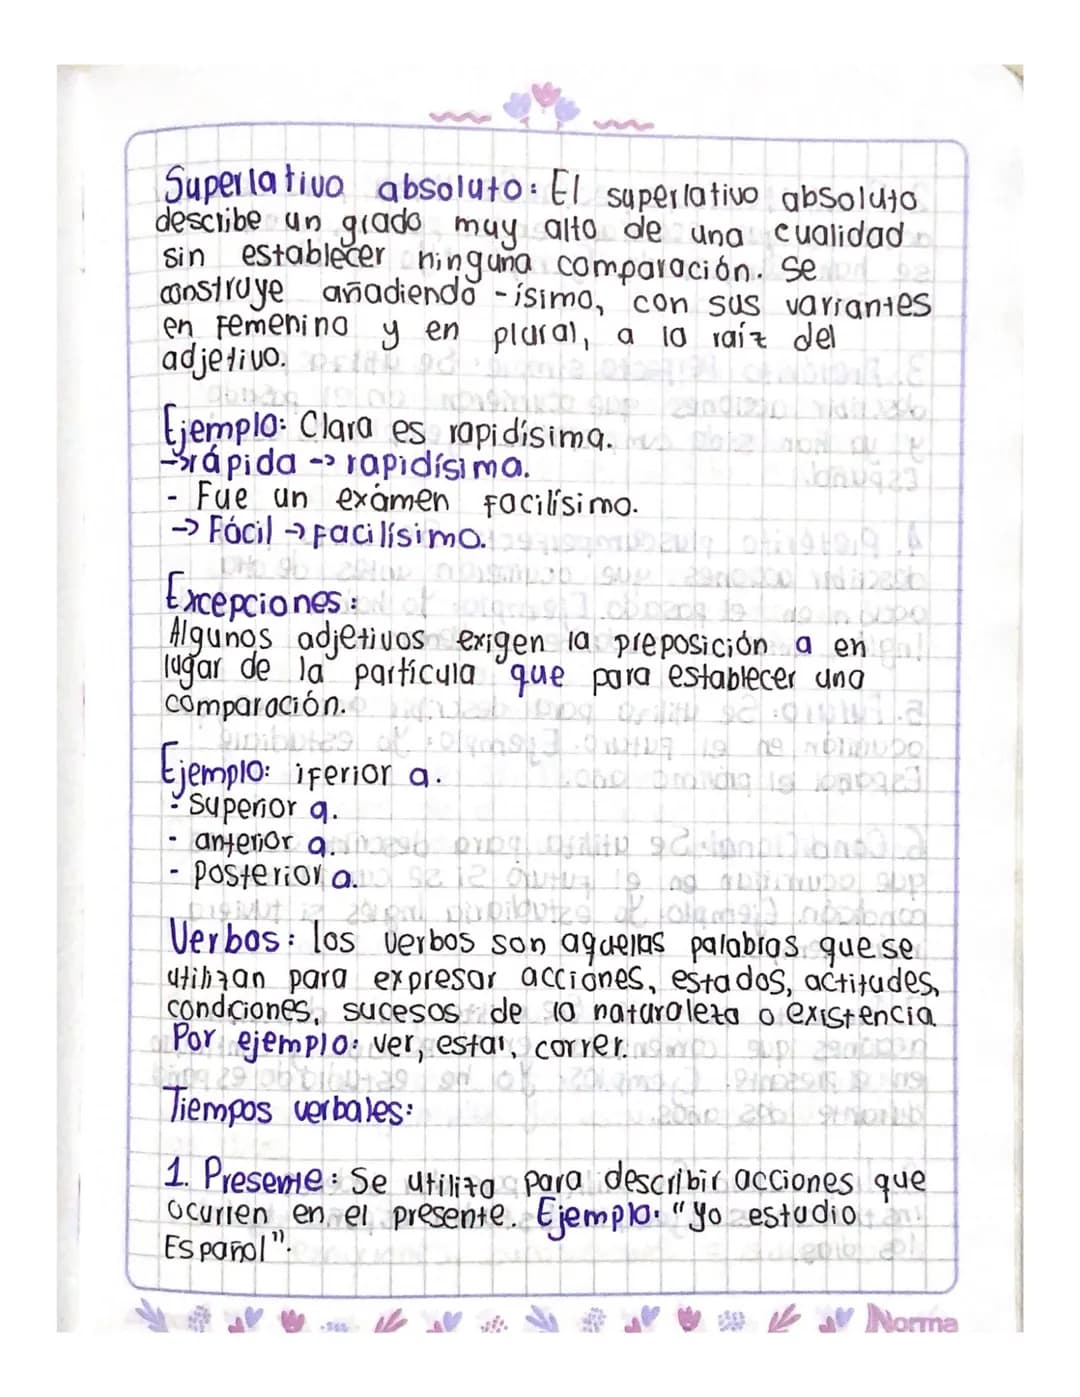 Superlativo absoluto: El superlativo absoluto
describe un grado muy alto de una cualidad
sin establecer ninguna comparación. Se
construye añadiendo -ísimo, con sus variantes
en Femenino y en plural, a la raíz del
adjetivo.
Ejemplo: Clara es rapidísima.
→rápida → rapidísima.
- Fue un exámen facilísimo.
→ Fácil → Facilísimo.
Excepciones:
Algunos adjetivos exigen la preposición a en
lugar de la partícula que para establecer una
comparación.
Ejemplo: iferior a.
- superior a.
- anterior a.
- posterior a.
Verbos: los verbos son aquellas palabras que se
utilizan para expresar acciones, estados, actitudes,
condciones, sucesos de la naturaleza o existencia.
Por ejemplo: ver, estar, correr.
Tiempos verbales:
1. Presente: Se utiliza para describir acciones que
ocurren en el presente. Ejemplo: "Yo estudio
Español".
Norma